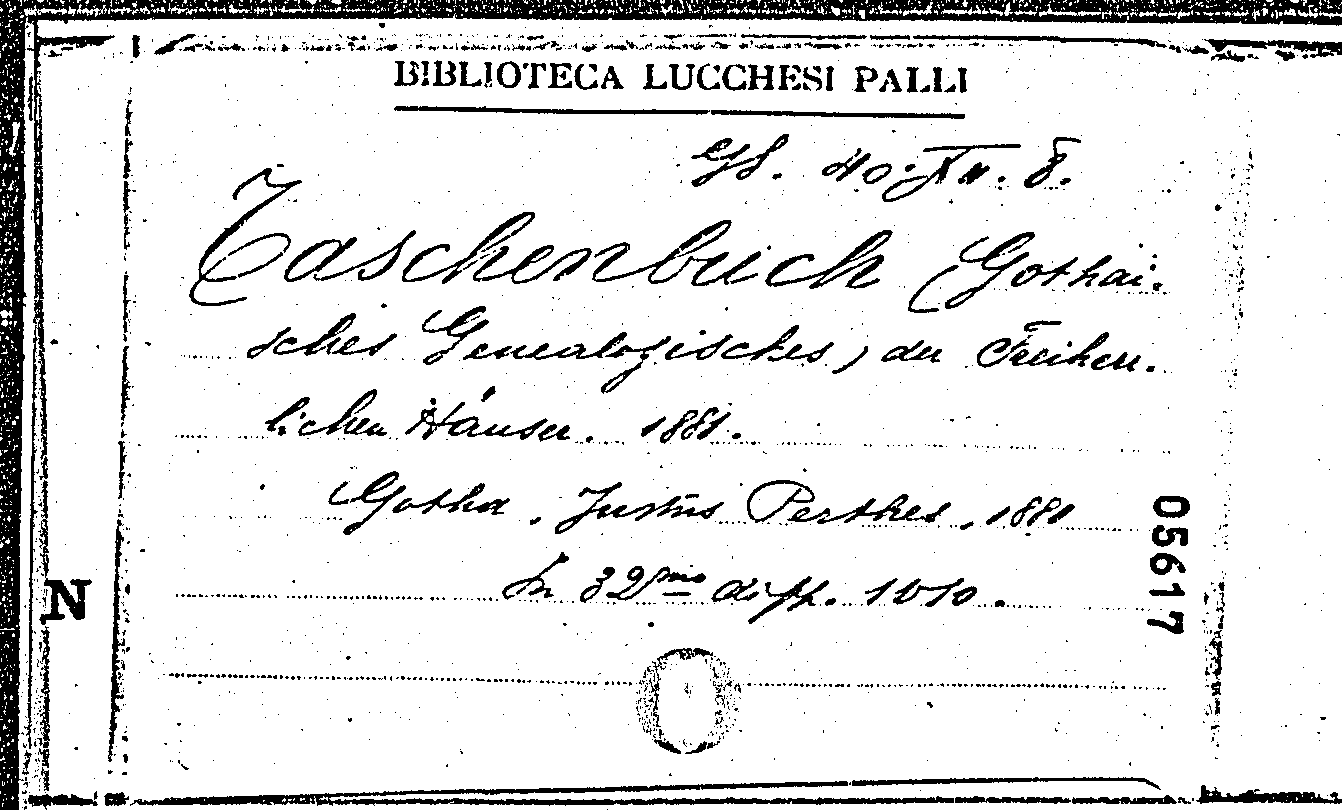 BIBLIOTECA LUCCHESI PALLI
40. 8.
Taschenbuch (Gothai-
sches Genealogisches) der Freiherr-
lichen Häuser. 1881.
Gotha, Justus Perthes, 1881
In 32mo di pp. 1010.
05617
N